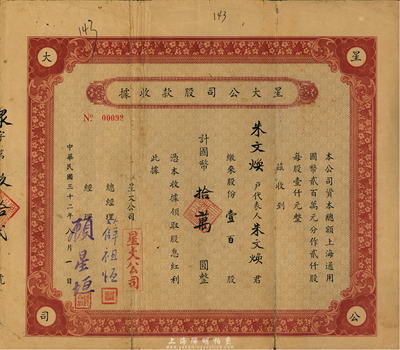 143
143
大
星
據收款股司公大星
Nº 00092
本公司資本總額上海通用
國幣貳百萬元分作貳仟股
每股壹仟元整
茲收到
朱文煐 戶代表人 朱文煐 君
繳來股份 壹百 股
計國幣 拾萬 圓整
憑本收據領取股息紅利
此據
星大公司
星大公司
總經理
經
顧星垣
中華民國三十二年八月一日
司
公